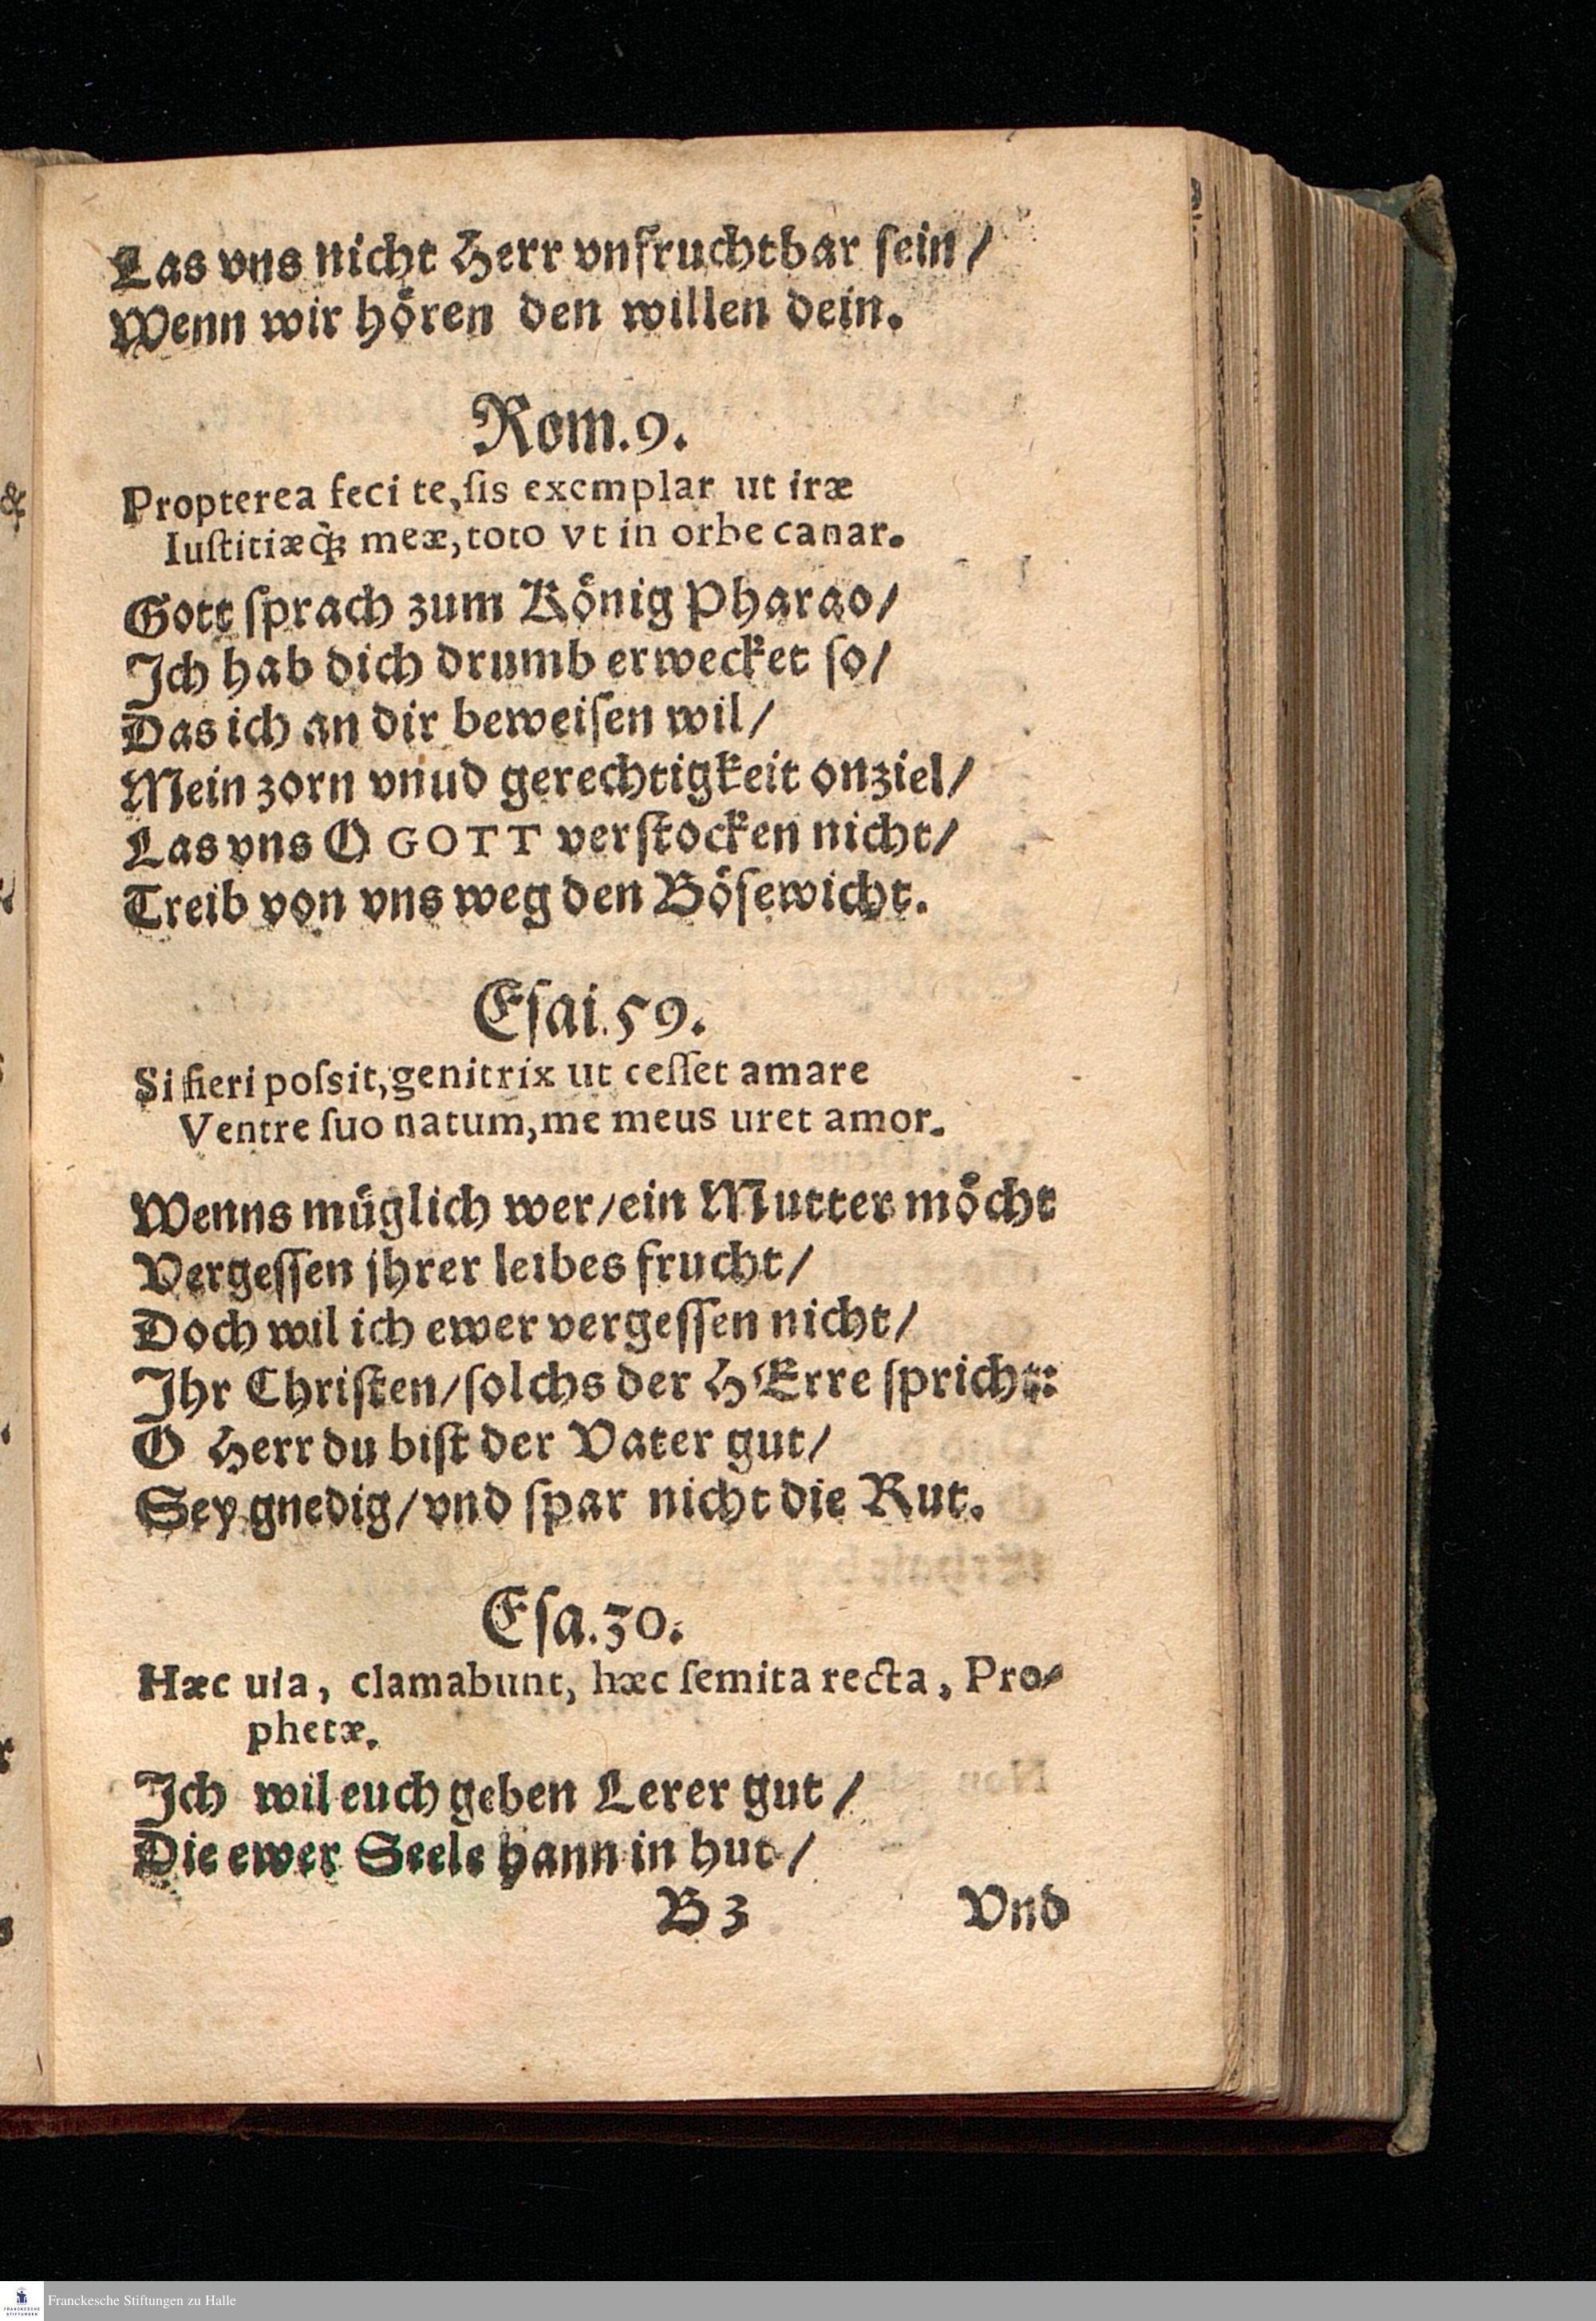 Las vns nicht Herr vnfruchtbar ſein/
Wenn wir hoͤren den willen dein.
Rom.9.
Propterea feci te, ſis exemplar ut iræ
Iuſtitiæq́; meæ, toto vt in orbe canar.
Gott ſprach zum Koͤnig Pharao/
Ich hab dich drumb erwecket ſo/
Das ich an dir beweiſen wil/
Mein zorn vnud gerechtigkeit onziel/
Las vns O GOTT verſtocken nicht/
Treib von vns weg den Boͤſewicht.
Eſai.59.
Si fieri poſsit, genitrix ut ceſſet amare
Ventre ſuo natum, me meus uret amor.
Wenns muͤglich wer/ein Mutter moͤcht
Vergeſſen jhrer leibes frucht/
Doch wil ich ewer vergeſſen nicht/
Ihr Chriſten/ſolchs der HErre ſpricht:
O Herr du biſt der Vater gut/
Sey gnedig/vnd ſpar nicht die Rut.
Eſa.30.
Hæc uia, clamabunt, hæc ſemita recta, Pro⸗
phetæ.
Ich wil euch geben Lerer gut/
Die ewer Seele hann in hut/
B 3 Vnd
Franckesche Stiftungen zu Halle